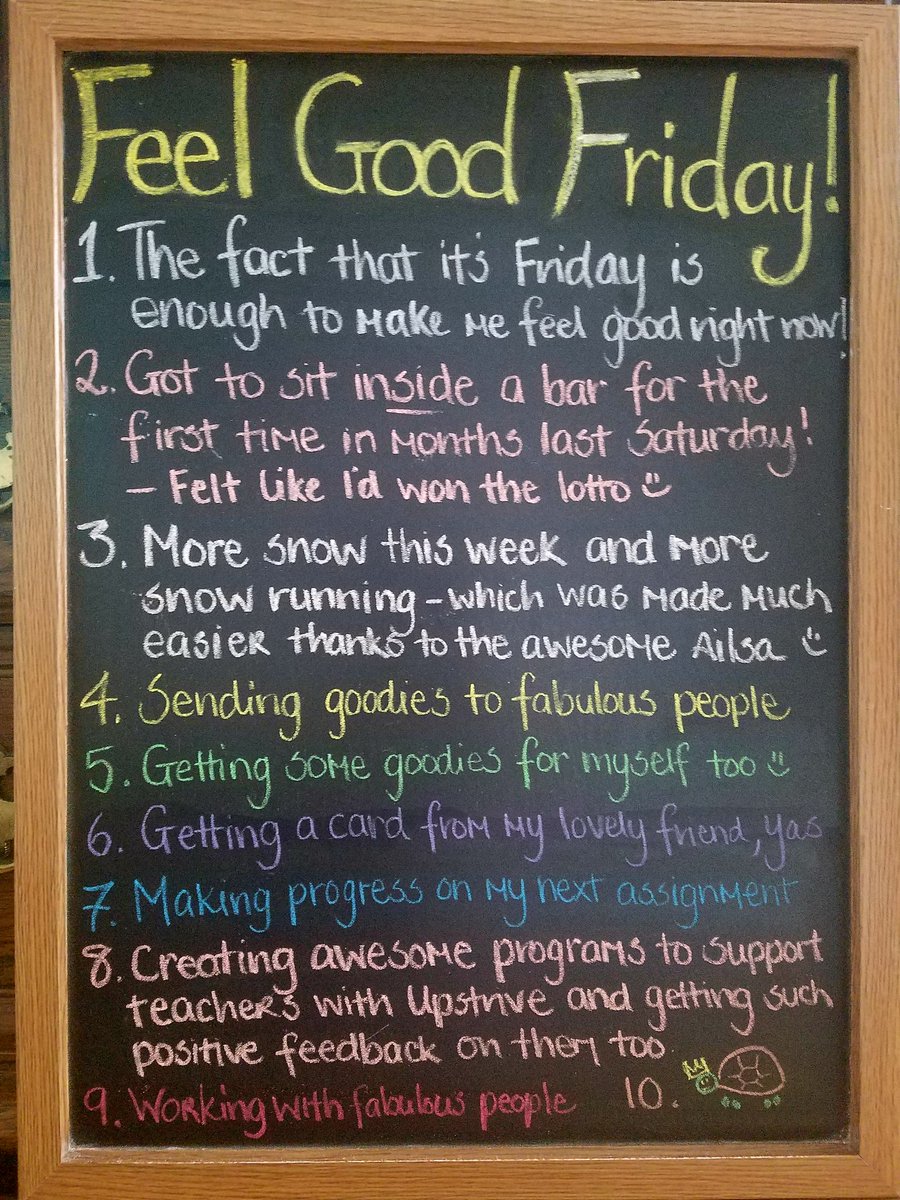 Feel Good Friday!
1. The fact that it's Friday is
enough to make me feel good right now!
2. Got to sit inside a bar for the
first time in months last Saturday!
- Felt like I'd won the lotto
3. More snow this week and more
snow running - which was made much
easier thanks to the awesome Ailsa
4. Sending goodies to fabulous people
5. Getting some goodies for myself too
6. Getting a card from my lovely friend, Yas
7. Making progress on my next assignment
8. Creating awesome programs to support
teachers with Upstrive and getting such
positive feedback on them too.
9. Working with fabulous people 10.